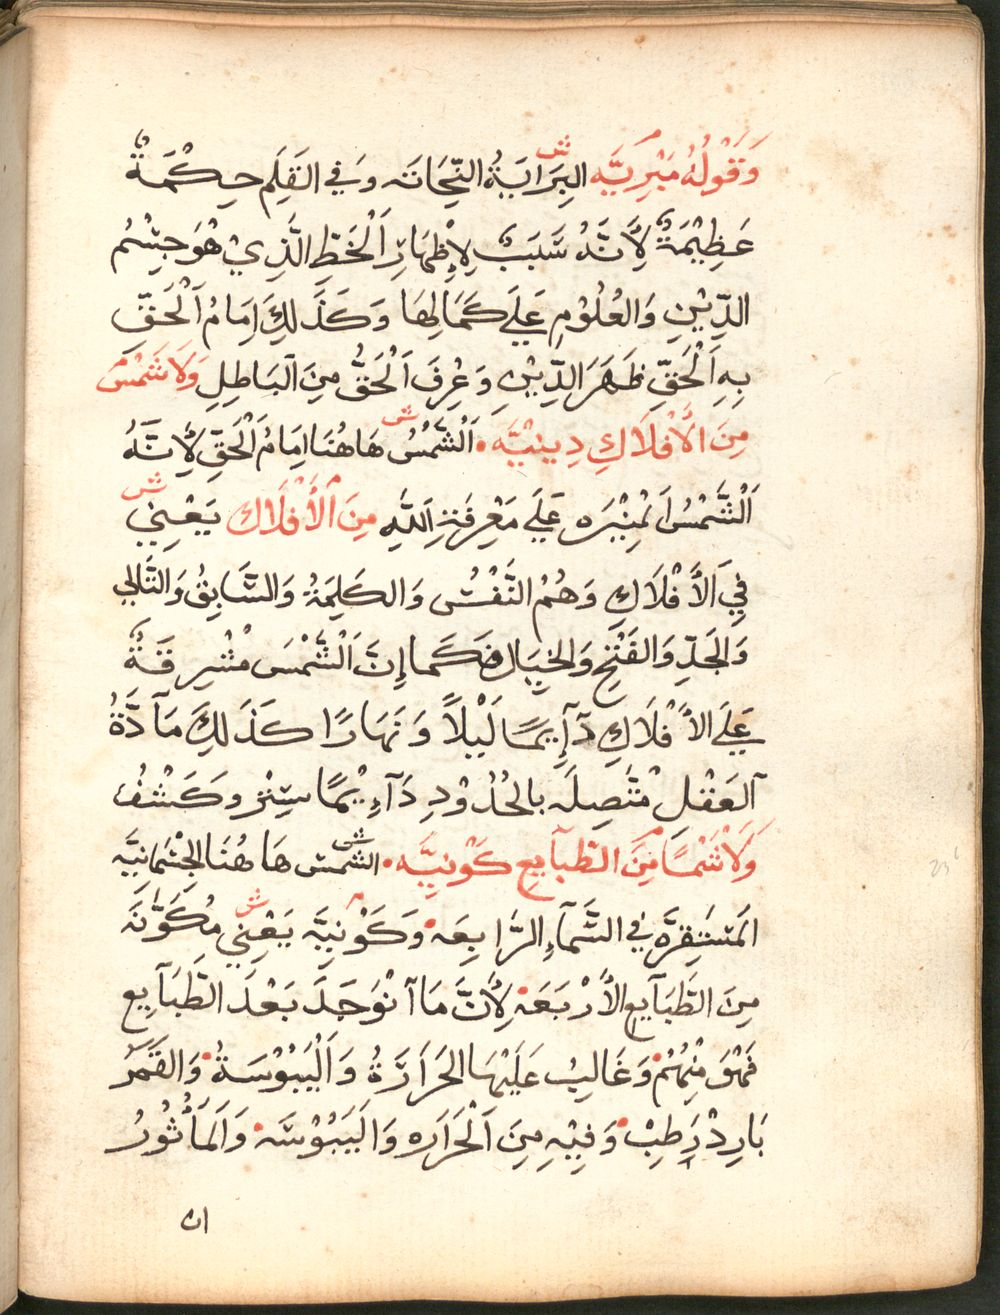 وَقَوْلُهُ مَبْرِيَّه ش البِرَايَةُ النِّحَاتَه وَفي القَلَم حِكْمَةٌ
عَظِيْمَةٌ لِأَنَّهُ سَبَبٌ لِإِظْهَارِ اَلْخَطِّ الَّذِيْ هُوَ جِسْمُ
الدِّيْنِ وَالعُلُوْمِ عَلَي كَمَالِهَا وَكَذَلِكَ اِمَامُ اَلْحَقِّ
بِهِ اَلْحَقّ ظَهَرَ الدِّيْنِ وَعُرِفَ اَلْحَقُّ مِنَ اَلبَاطِلِ وَلَا شَمْسً
مِنَ الأَفْلَاكِ دِينِيَّه • ش اَلْشَّمْسُ هَاهُنَا اِمَامُ اَلْحَقِّ لِأَنَّهُ
اَلْشَّمْسُ اَلمُنِيْرَه عَلَي مَعْرِفَةِ اَللَّهِ مِنَ اَلأَفْلَاك ش يَعْنِي
فِي اَلأَفْلَاكِ وَهُمُ النَّفْسُ وَالكَلِمَةُ وَالسَّابِقُ وَالتَّالِي
وَالجَدِّ وَالفَتْحِ وَالخِيَال فَكَمَا إِنَّ اَلْشَّمْسَ مُشْرِقَةٌ
عَلَي الأَفْلَاكِ دَآئِمًا لَيْلاً وَنَهَارًا كَذَلِكَ مَآدَّةُ
اَلعَقْلِ مُتَّصِلَه بالحُدُوْدِ دَآئِمًا سِتْرٍ وَكَشْفُ
وَلَا شَمْسًا مِنَ الطَبآيِعِ كَوْنِيَّه • ش الشَّمْس هَاهُنَا الجِسْمَانِيَّه
المَسْتَقِرَّه فِي السَّمآءِ الرَّابِعَه • وَكَوْنِيَّه ش يَعْنِي مُكَوَّنَه
مِنَ الطَّبَآيِعِ الأَرْبَعَة • لأَنَّ مَا آنْوَجَدَ بَعْدَ الطَّبَآيِعِ
فَهْوَ مِنْهُمْ • وَغَالِبُ عَلَيْهَا الحَرَارَةُ وَاَلْيُبُوْسَةُ • وَالقَمَرُ
بَارِدْ رَطِبْ • وَفِيْهِ مِنَ اَلْحَرَارَه وَاَلْيَبُوْسَّه • وَاَلمَأْثُورُ
ان